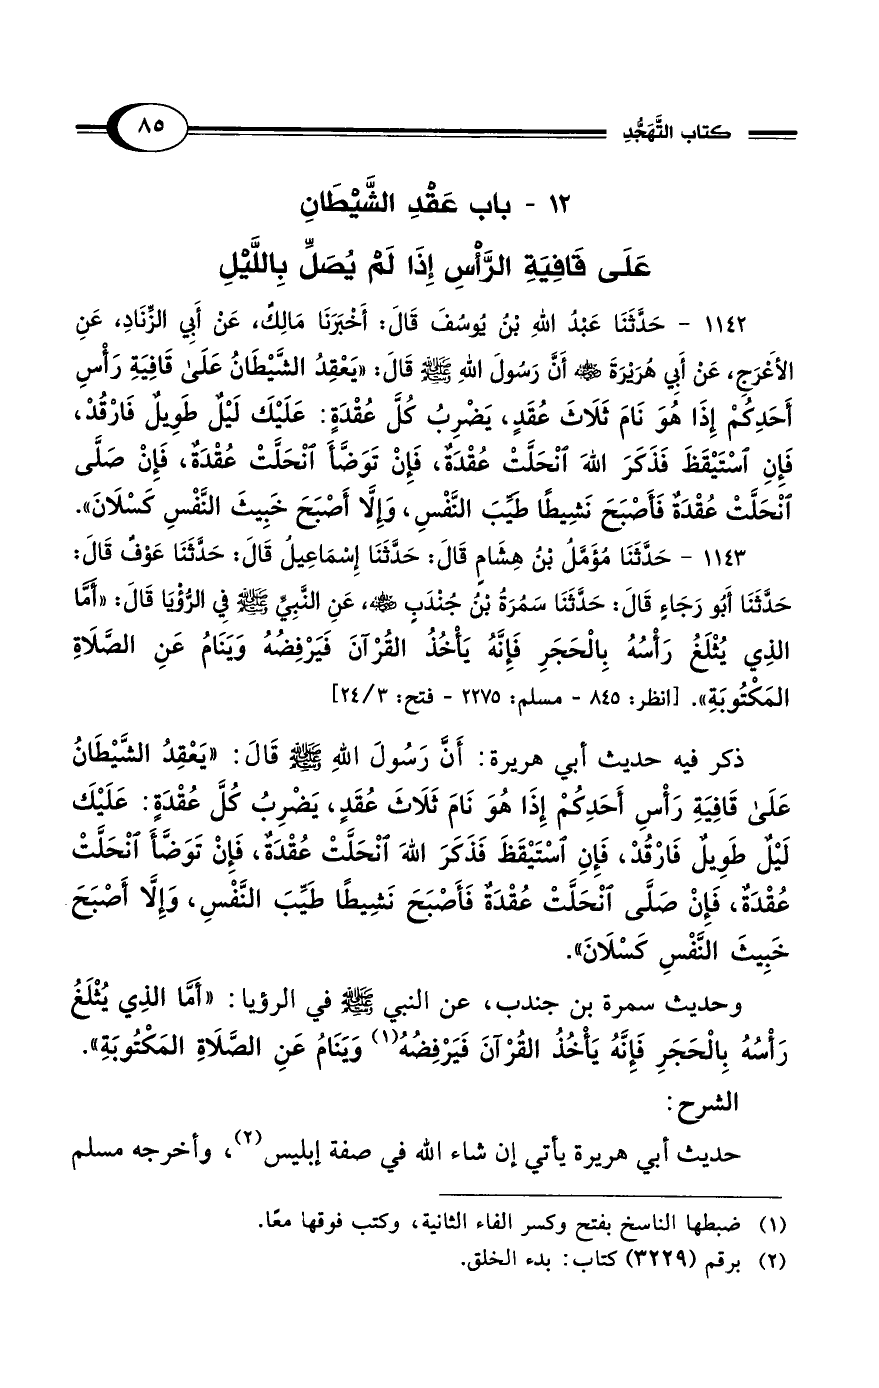 كتاب التَّهَجُّدِ ٨٥
١٢ - باب عَقْدِ الشَّيْطَانِ
عَلَى قَافِيَةِ الرَّأْسِ إِذَا لَمْ يُصَلِّ بِاللَّيْلِ
١١٤٢ - حَدَّثَنَا عَبْدُ اللهِ بْنُ يُوسُفَ قَالَ: أَخْبَرَنَا مَالِكٌ، عَنْ أَبِي الزِّنَادِ، عَنِ
الأَعْرَجِ، عَنْ أَبِي هُرَيْرَةَ رضي الله عنه أَنَّ رَسُولَ اللهِ ﷺ قَالَ: «يَعْقِدُ الشَّيْطَانُ عَلَىٰ قَافِيَةِ رَأْسِ
أَحَدِكُمْ إِذَا هُوَ نَامَ ثَلَاثَ عُقَدٍ، يَضْرِبُ كُلَّ عُقْدَةٍ: عَلَيْكَ لَيْلٌ طَوِيلٌ فَارْقُدْ،
فَإِنِ ٱسْتَيْقَظَ فَذَكَرَ اللهَ ٱنْحَلَّتْ عُقْدَةٌ، فَإِنْ تَوَضَّأَ ٱنْحَلَّتْ عُقْدَةٌ، فَإِنْ صَلَّى
ٱنْحَلَّتْ عُقْدَةٌ فَأَصْبَحَ نَشِيطًا طَيِّبَ النَّفْسِ، وَإِلَّا أَصْبَحَ خَبِيثَ النَّفْسِ كَسْلَانَ».
١١٤٣ - حَدَّثَنَا مُؤَمَّلُ بْنُ هِشَامٍ قَالَ: حَدَّثَنَا إِسْمَاعِيلُ قَالَ: حَدَّثَنَا عَوْفٌ قَالَ:
حَدَّثَنَا أَبُو رَجَاءٍ قَالَ: حَدَّثَنَا سَمُرَةُ بْنُ جُنْدَبٍ رضي الله عنه، عَنِ النَّبِيِّ ﷺ فِي الرُّؤْيَا قَالَ: «أَمَّا
الذِي يُثْلَغُ رَأْسُهُ بِالْحَجَرِ فَإِنَّهُ يَأْخُذُ القُرْآنَ فَيَرْفِضُهُ وَيَنَامُ عَنِ الصَّلَاةِ
المَكْتُوبَةِ». [انظر: ٨٤٥ - مسلم: ٢٢٧٥ - فتح: ٢٤/٣]
ذكر فيه حديث أبي هريرة: أَنَّ رَسُولَ اللهِ ﷺ قَالَ: «يَعْقِدُ الشَّيْطَانُ
عَلَىٰ قَافِيَةِ رَأْسِ أَحَدِكُمْ إِذَا هُوَ نَامَ ثَلَاثَ عُقَدٍ، يَضْرِبُ كُلَّ عُقْدَةٍ: عَلَيْكَ
لَيْلٌ طَوِيلٌ فَارْقُدْ، فَإِنِ ٱسْتَيْقَظَ فَذَكَرَ اللهَ ٱنْحَلَّتْ عُقْدَةٌ، فَإِنْ تَوَضَّأَ ٱنْحَلَّتْ
عُقْدَةٌ، فَإِنْ صَلَّى ٱنْحَلَّتْ عُقْدَةٌ فَأَصْبَحَ نَشِيطًا طَيِّبَ النَّفْسِ، وَإِلَّا أَصْبَحَ
خَبِيثَ النَّفْسِ كَسْلَانَ».
وحديث سمرة بن جندب، عن النبي ﷺ في الرؤيا: «أَمَّا الذِي يُثْلَغُ
رَأْسُهُ بِالْحَجَرِ فَإِنَّهُ يَأْخُذُ القُرْآنَ فَيَرْفِضُهُ(١) وَيَنَامُ عَنِ الصَّلَاةِ المَكْتُوبَةِ».
الشرح:
حديث أبي هريرة يأتي إن شاء الله في صفة إبليس(٢)، وأخرجه مسلم
(١) ضبطها الناسخ بفتح وكسر الفاء الثانية، وكتب فوقها معًا.
(٢) برقم (٣٢٢٩) كتاب: بدء الخلق.